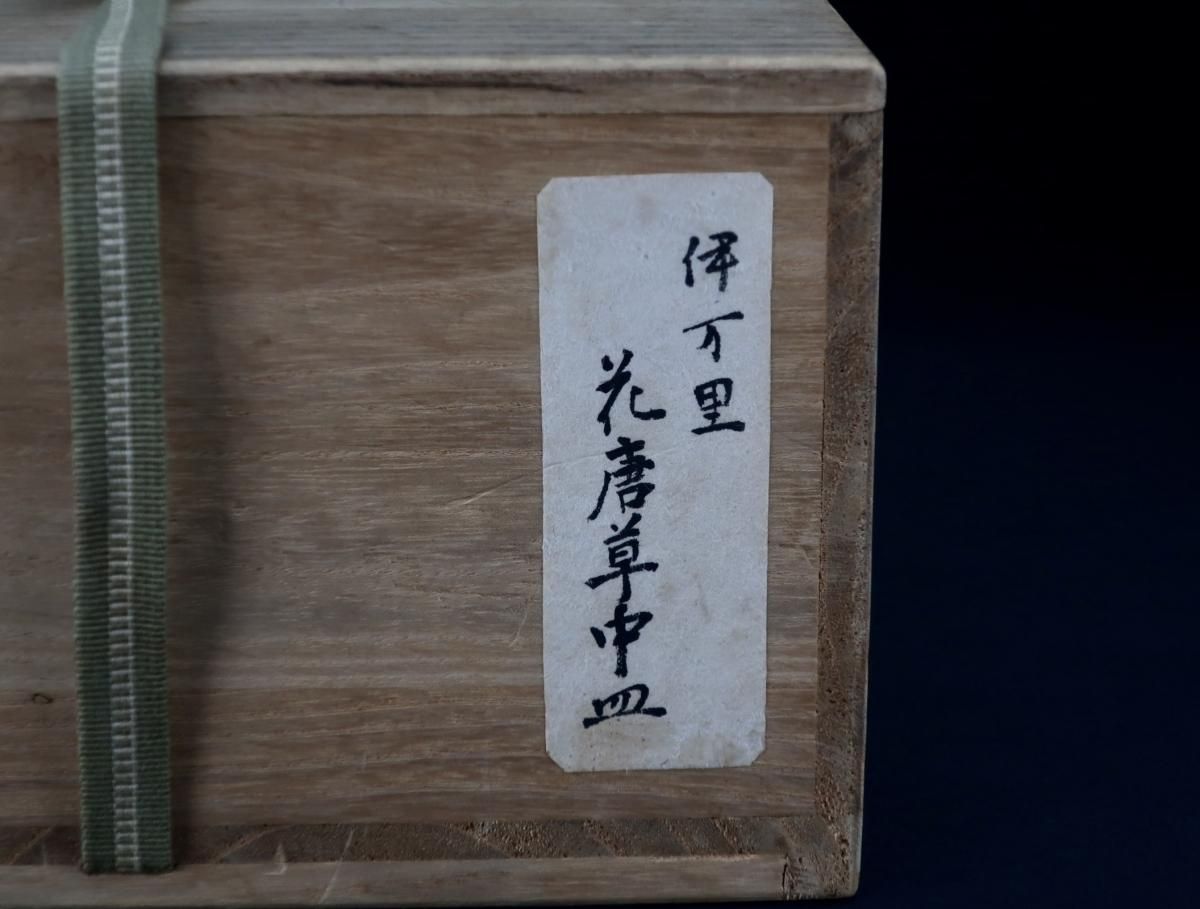 伊万里
花唐草中皿